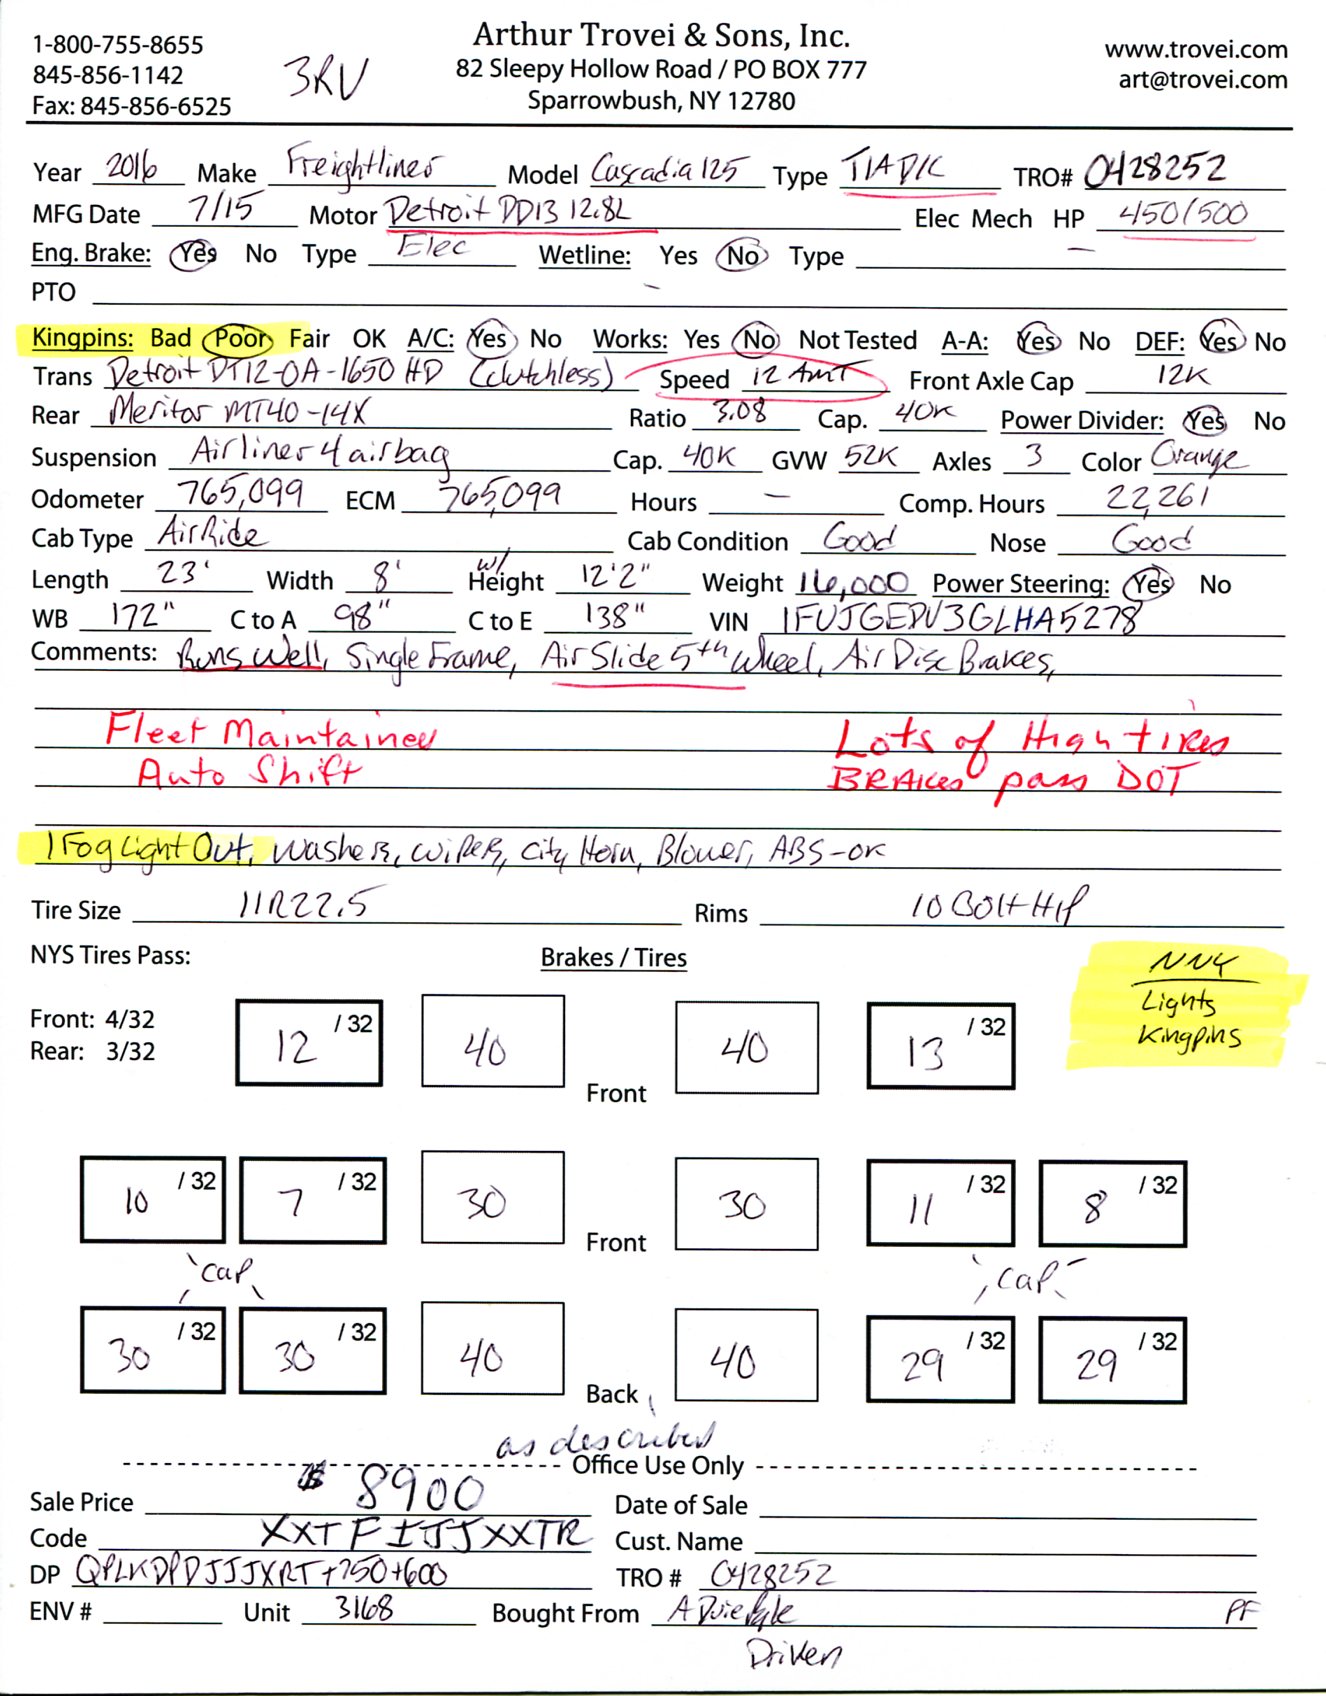 Arthur Trovei & Sons, Inc.
1-800-755-8655 82 Sleepy Hollow Road / PO BOX 777 www.trovei.com
845-856-1142 3RV art@trovei.com
Fax: 845-856-6525 Sparrowbush, NY 12780
Year 2016 Make Freightliner Model Cascadia 125 Type T/A D/C TRO# 0428252
MFG Date 7/15 Motor Detroit DD13 12.8L Elec Mech HP 450/500
Eng. Brake: Yes No Type Elec Wetline: Yes No Type —
PTO —
Kingpins: Bad Poor Fair OK A/C: Yes No Works: Yes No Not Tested A-A: Yes No DEF: Yes No
Trans Detroit DT12-OA-1650 HD (clutchless) Speed 12 AMT Front Axle Cap 12K
Rear Meritor MT40-14X Ratio 3.08 Cap. 40K Power Divider: Yes No
Suspension Airliner 4 airbag Cap. 40K GVW 52K Axles 3 Color Orange
Odometer 765,099 ECM 765,099 Hours — Comp. Hours 22,261
Cab Type AirRide Cab Condition Good Nose Good
Length 23' Width 8' w/ Height 12'2" Weight 16,000 Power Steering: Yes No
WB 172" C to A 98" C to E 138" VIN 1FUJGEDV3GLHA5278
Comments: Runs Well, Single Frame, Air Slide 5th Wheel, Air Disc Brakes,
Fleet Maintained Lots of High tires
Auto Shift BRAKes pass DOT
1 Fog Light Out, Washers, Wipers, City Horn, Blower, ABS-OK
Tire Size 11R22.5 Rims 10 Bolt H/P
NYS Tires Pass: Brakes / Tires NNY
Lights
Kingpins
Front: 4/32 12 /32 40 40 13 /32
Rear: 3/32
Front
10 /32 7 /32 30 30 11 /32 8 /32
Front
Cap Cap
30 /32 30 /32 40 40 29 /32 29 /32
Back
as described
Office Use Only
Sale Price $8900 Date of Sale
Code XXTFIJJXXTR Cust. Name
DP QPLKDPDJJJXRT+750+600 TRO # 0428252
ENV # Unit 3168 Bought From A PF
Driven